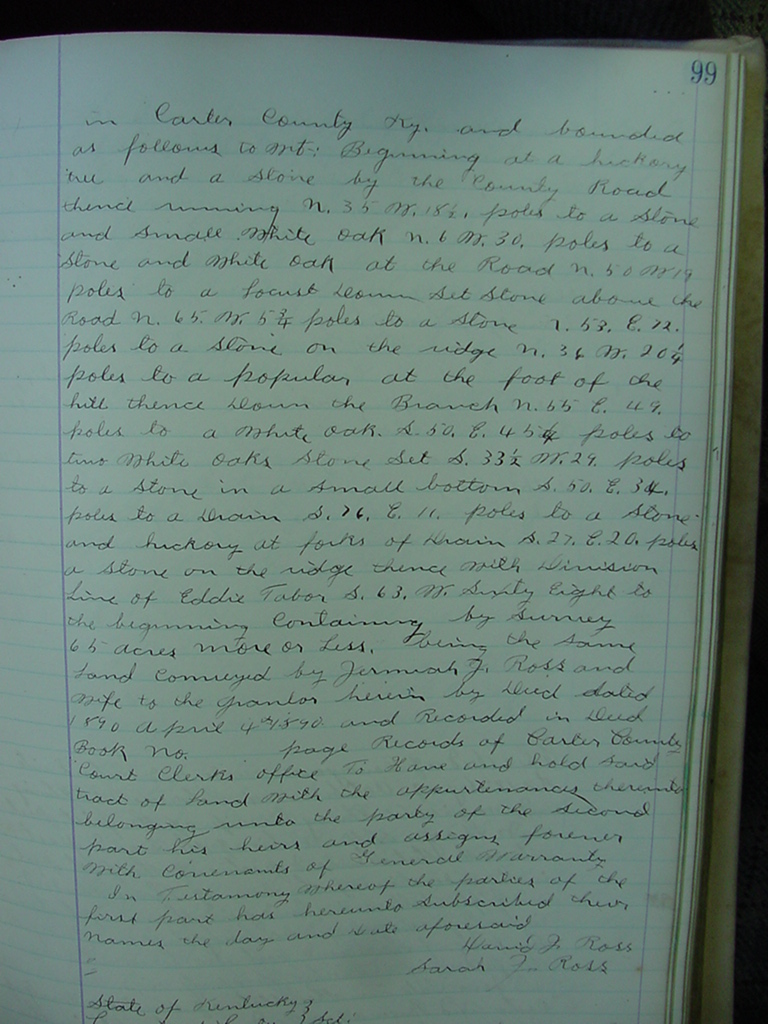 99
in Carter County Ky. and bounded
as follows to Wt: Beginning at a hickory
tree and a Stone by the County Road
thence running N. 35 W. 18½. poles to a Stone
and Small White Oak N. 6 W. 30. poles to a
Stone and White Oak at the Road N. 50 W 19
poles to a Locust Down Set Stone above the
Road N. 65. W. 5¾ poles to a Stone 53. E. 72.
poles to a Stone on the ridge N. 36 W. 20¼
poles to a popular at the foot of the
hill thence Down the Branch N. 65 E. 49.
poles to a White Oak. S. 50. E. poles to
two White Oaks Stone Set S. 33½ W. 29. poles
to a Stone in a small bottom S. 50. E. 34.
poles to a Drain S. 76. E. 11. poles to a Stone
and hickory at forks of Drain S. 27. E. 20. poles
a Stone on the ridge thence with Division
Line of Eddie Tabor S. 63. W. Sixty Eight to
the beginning Containing by Survey
65 acres more or Less. being the Same
Land Conveyed by Jermiah J. Ross and
Wife to the grantor herein by Deed dated
1890 April 4th 1890 and Recorded in Deed
Book No. page Records of Carter County
Court Clerks office To Have and hold said
tract of Land With the appurtenances thereunto
belonging unto the party of the Second
part his heirs and assigns forever
With Covenants of General Warranty
In Testamony Whereof the parties of the
first part has hereunto Subscribed their
Names the day and Date aforesaid
David J. Ross
Sarah F. Ross
State of Kentucky }
Sct: